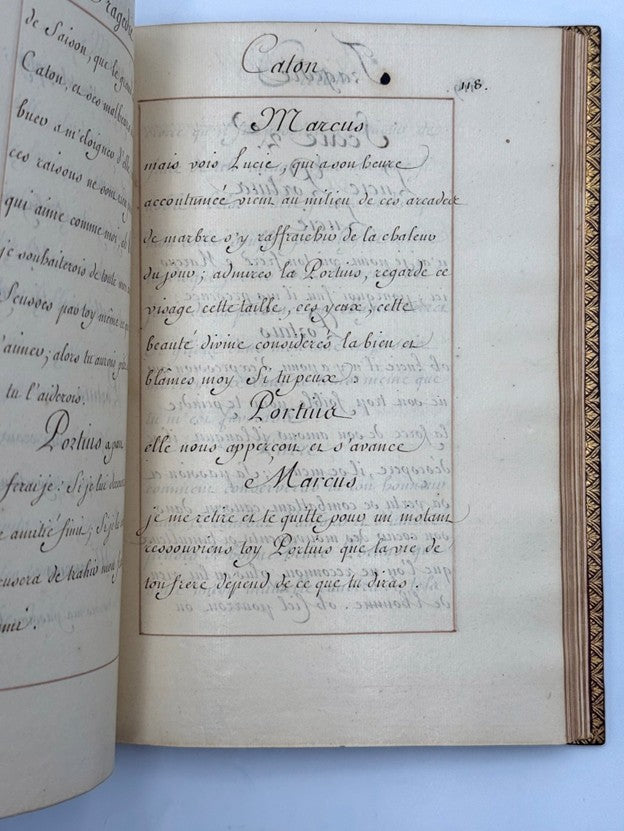 Tragedie
de Saison, que le grand
Caton, et ses malheurs
ces raisons ne sont
qui aime comme moi, et
je souhaiterois de toute mon
Feusses par toy même
d'aimer; alors tu aurois
tu l'aiderois.
Portius a part
ferai je: Si je lui
amitié finit; Si je
cusera de trahir mon
Caton
118.
Marcus
mais vois Lucie, qui a son heure
accoutumée vient au milieu de ces arcades
de marbre s'y raffraichir de la chaleur
du jour; admires la Portius, regarde ce
visage cette taille, ces yeux; cette
beauté divine considerés la bien et
blâmes moy Si tu peux
Portius
elle nous apperçoit et s'avance
Marcus
je me retire et te quitte pour un instant
ressouviens toy Portius que la vie de
ton frere depend de ce que tu diras.